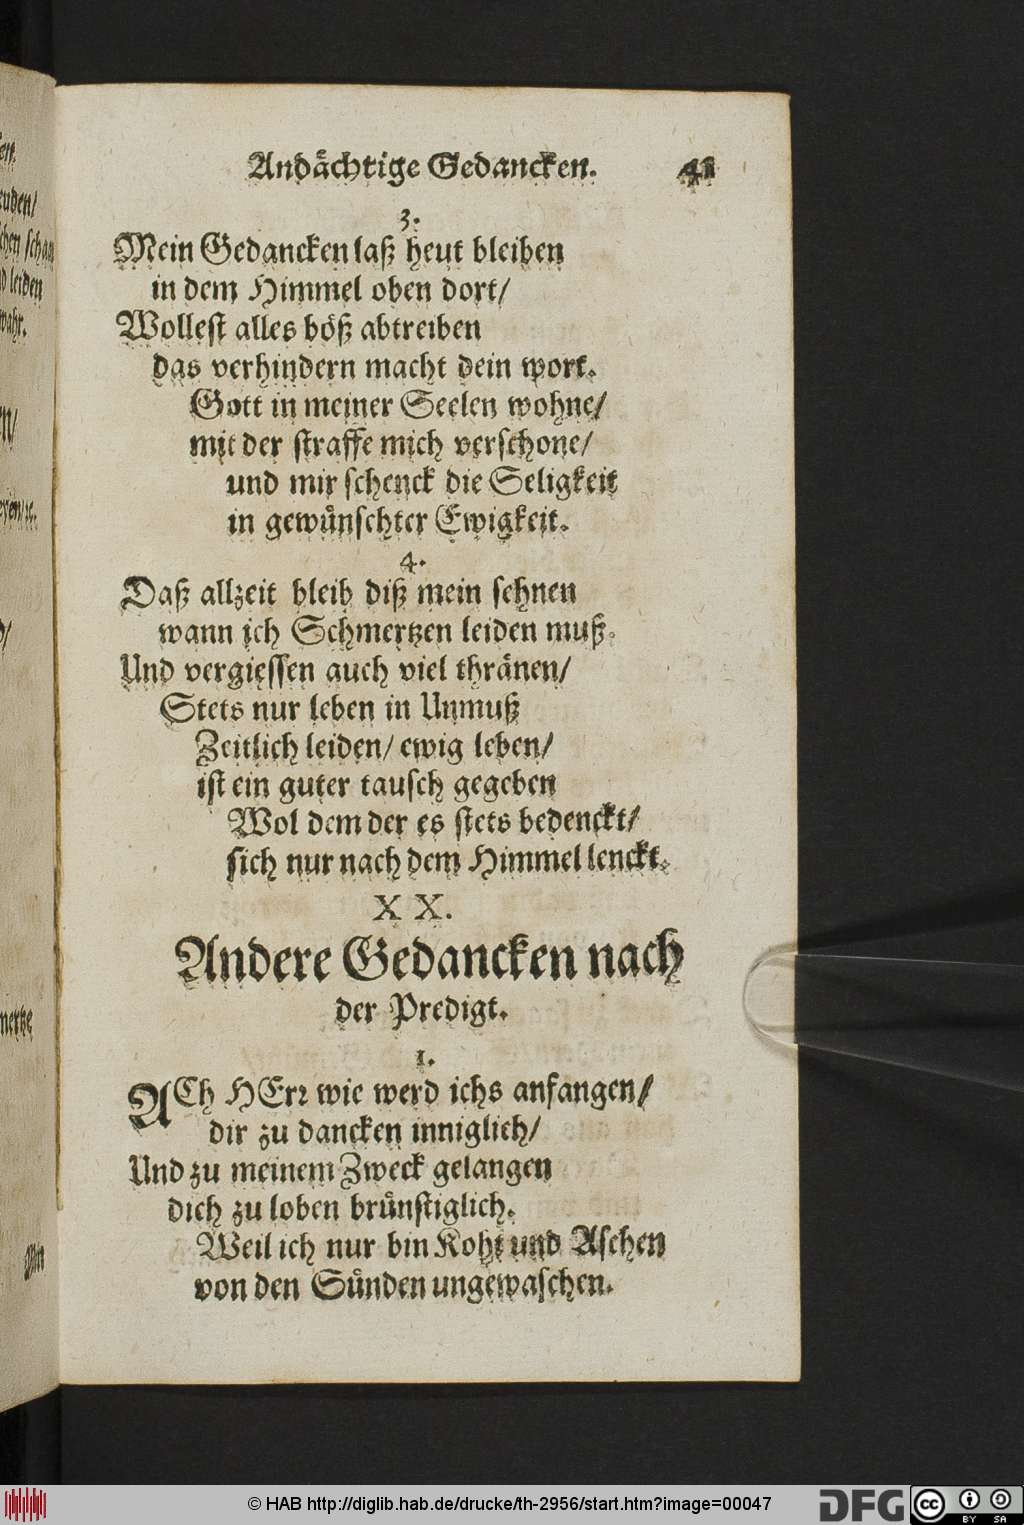 Andächtige Gedancken. 41
3.
Mein Gedancken laß heut bleiben
in dem Himmel oben dort/
Wollest alles böß abtreiben
das verhindern macht dein wort.
Gott in meiner Seelen wohne/
mit der straffe mich verschone/
und mir schenck die Seligkeit
in gewünschter Ewigkeit.
4.
Daß allzeit bleib diß mein sehnen
wann ich Schmertzen leiden muß.
Und vergiessen auch viel thränen/
Stets nur leben in Unmuß
Zeitlich leiden/ ewig leben/
ist ein guter tausch gegeben
Wol dem der es stets bedenckt/
sich nur nach dem Himmel lenckt.
XX.
Andere Gedancken nach
der Predigt.
1.
ACh HErr wie werd ichs anfangen/
dir zu dancken inniglich/
Und zu meinem Zweck gelangen
dich zu loben brünstiglich.
Weil ich nur bin Koht und Aschen
von den Sünden ungewaschen.
© HAB http://diglib.hab.de/drucke/th-2956/start.htm?image=00047
DFG
cc BY SA